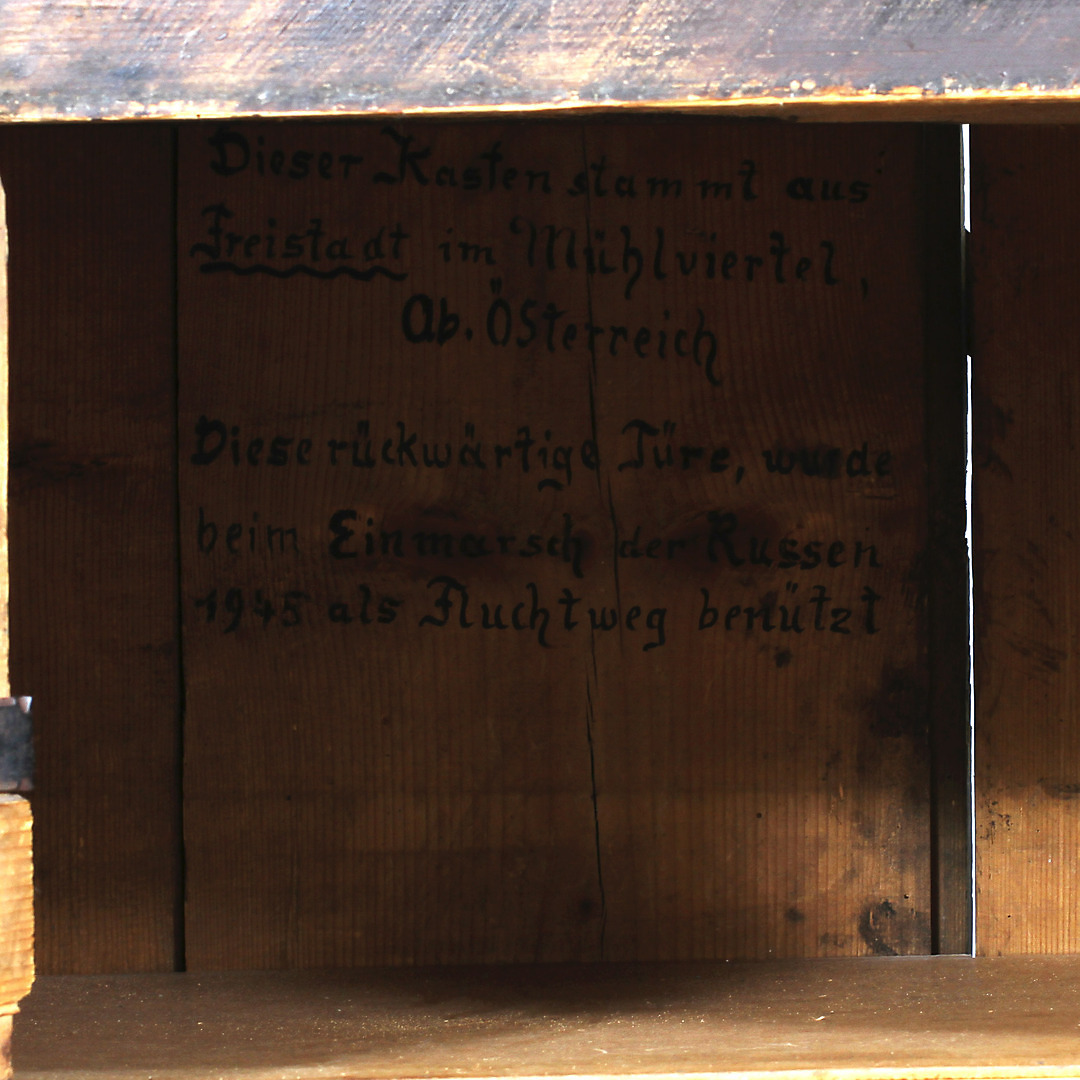 Dieser Kasten stammt aus
Freistadt im Mühlviertel,
Ob. Österreich
Diese rückwärtige Türe, wurde
beim Einmarsch der Russen
1945 als Fluchtweg benützt